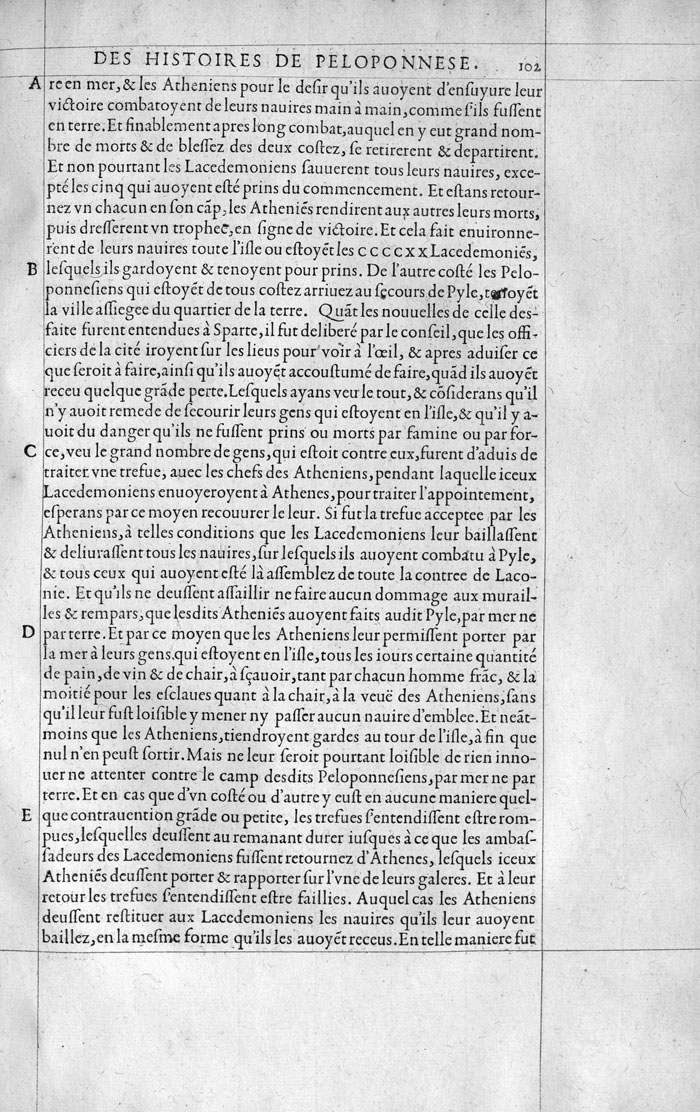 DES HISTOIRES DE PELOPONNESE. 102
A re en mer,& les Atheniens pour le desir qu'ils auoyent d'ensuyure leur
victoire combatoyent de leurs nauires main à main,comme s'ils fussent
en terre.Et finablement apres long combat,auquel en y eut grand nom-
bre de morts & de blessez des deux costez, se retirerent & departirent.
Et non pourtant les Lacedemoniens sauuerent tous leurs nauires, exce-
pté les cinq qui auoyent esté prins du commencement. Et estans retour-
nez vn chacun en son cãp, les Atheniẽs rendirent aux autres leurs morts,
puis dresserent vn trophee, en signe de victoire. Et cela fait enuironne-
rent de leurs nauires toute l'isle ou estoyẽt les ccccxx Lacedemoniẽs,
B lesquels ils gardoyent & tenoyent pour prins. De l'autre costé les Pelo-
ponnesiens qui estoyẽt de tous costez arriuez au secours de Pyle,
la ville assiegee du quartier de la terre. Quãt les nouuelles de celle des-
faite furent entendues à Sparte, il fut deliberé par le conseil, que les offi-
ciers de la cité iroyent sur les lieus pour voir à l'œil, & apres aduiser ce
que seroit à faire,ainsi qu'ils auoyẽt accoustumé de faire,quãd ils auoyẽt
receu quelque grãde perte.Lesquels ayans veu le tout, & cõsiderans qu'il
n'y auoit remede de secourir leurs gens qui estoyent en l'isle,& qu'il y a-
uoit du danger qu'ils ne fussent prins ou morts par famine ou par for-
C ce,veu le grand nombre de gens, qui estoit contre eux,furent d'aduis de
traiter vne trefue, auec les chefs des Atheniens,pendant laquelle iceux
Lacedemoniens enuoyeroyent à Athenes, pour traiter l'appointement,
esperans par ce moyen recouurer le leur. Si fut la trefue acceptee par les
Atheniens,à telles conditions que les Lacedemoniens leur baillassent
& deliurassent tous les nauires,sur lesquels ils auoyent combatu à Pyle,
& tous ceux qui auoyent esté là assemblez de toute la contree de Laco-
nie. Et qu'ils ne deussent assaillir ne faire aucun dommage aux murail-
les & rempars, que lesdits Atheniẽs auoyent faits audit Pyle,par mer ne
D par terre.Et par ce moyen que les Atheniens leur permissent porter par
la mer à leurs gens qui estoyent en l'isle, tous les iours certaine quantité
de pain, de vin & de chair, à sçauoir, tant par chacun homme frãc, & la
moitié pour les esclaues quant à la chair, à la veuë des Atheniens, sans
qu'il leur fust loisible y mener ny passer aucun nauire d'emblee.Et neãt-
moins que les Atheniens, tiendroyent gardes au tour de l'isle,à fin que
nul n'en peust sortir. Mais ne leur seroit pourtant loisible de rien inno-
uer ne attenter contre le camp desdits Peloponnesiens, par mer ne par
terre. Et en cas que d'vn costé ou d'autre y eust en aucune maniere quel-
E que contrauention grãde ou petite, les trefues s'entendissent estre rom-
pues, lesquelles deussent au remanant durer iusques à ce que les ambas-
sadeurs des Lacedemoniens fussent retournez d'Athenes, lesquels iceux
Atheniẽs deussent porter & rapporter sur l'vne de leurs galeres. Et à leur
retour les trefues s'entendissent estre faillies. Auquel cas les Atheniens
deussent restituer aux Lacedemoniens les nauires qu'ils leur auoyent
baillez, en la mesme forme qu'ils les auoyẽt receus. En telle maniere fut